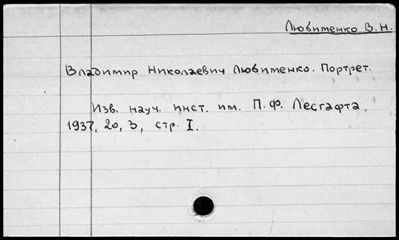 Любименко В. Н.
Владимир Николаевич Любименко. Портрет.
Изв. науч. инст. им. П. Ф. Лесгафта.
1937, 20, 3, стр. I.